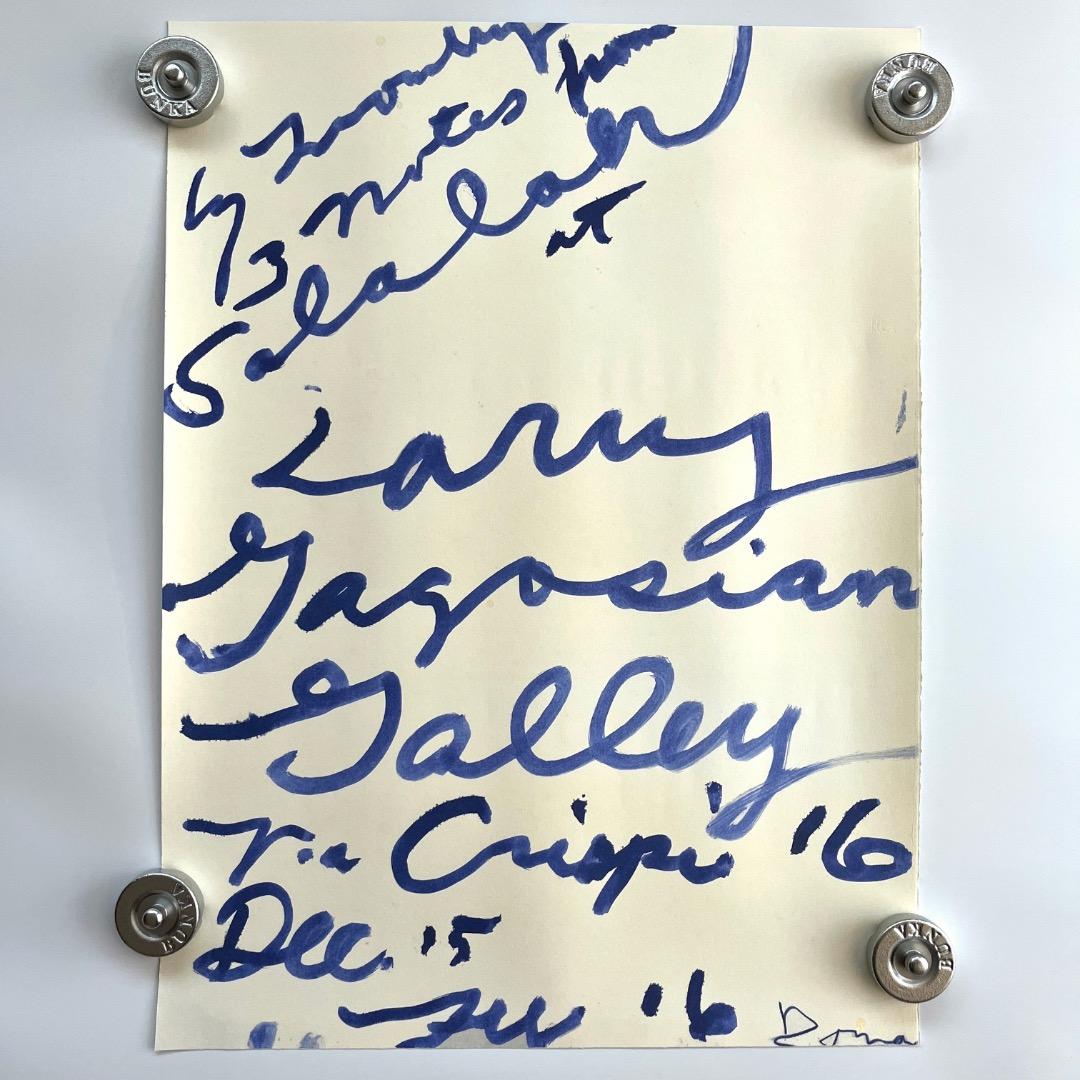 Twombly
3 notes from
Salalah
at
Larry
Gagosian
Galley
Via Crispi '16
Dec. '15
'16
Roma
BUNKA
BUNKA
BUNKA
BUNKA